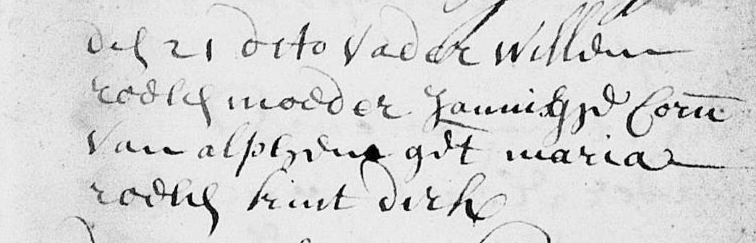 den 21 dito vader Willem
roelen moeder Jannighje Corn
van alphen get maria
roelen kint dirk